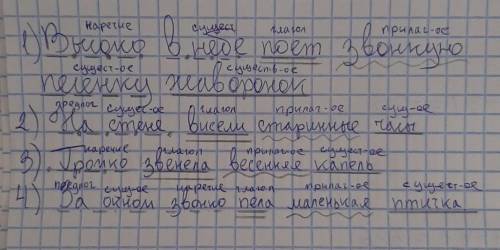 наречие сущест глагол прилаг-ое
1) Высоко в небе поет звонкую
сущест-ое существ-ое
песенку жаворонок
предлог сущес-ое глагол прилаг-ое сущ-ое
2) На стене висели старинные часы
наречие глагол прилаг-ое сущест-ое
3). Громко звенела весенняя капель
предлог сущ-ое наречие глагол прилаг-ое сущест-ое
4) За окном звонко пела маленькая птичка